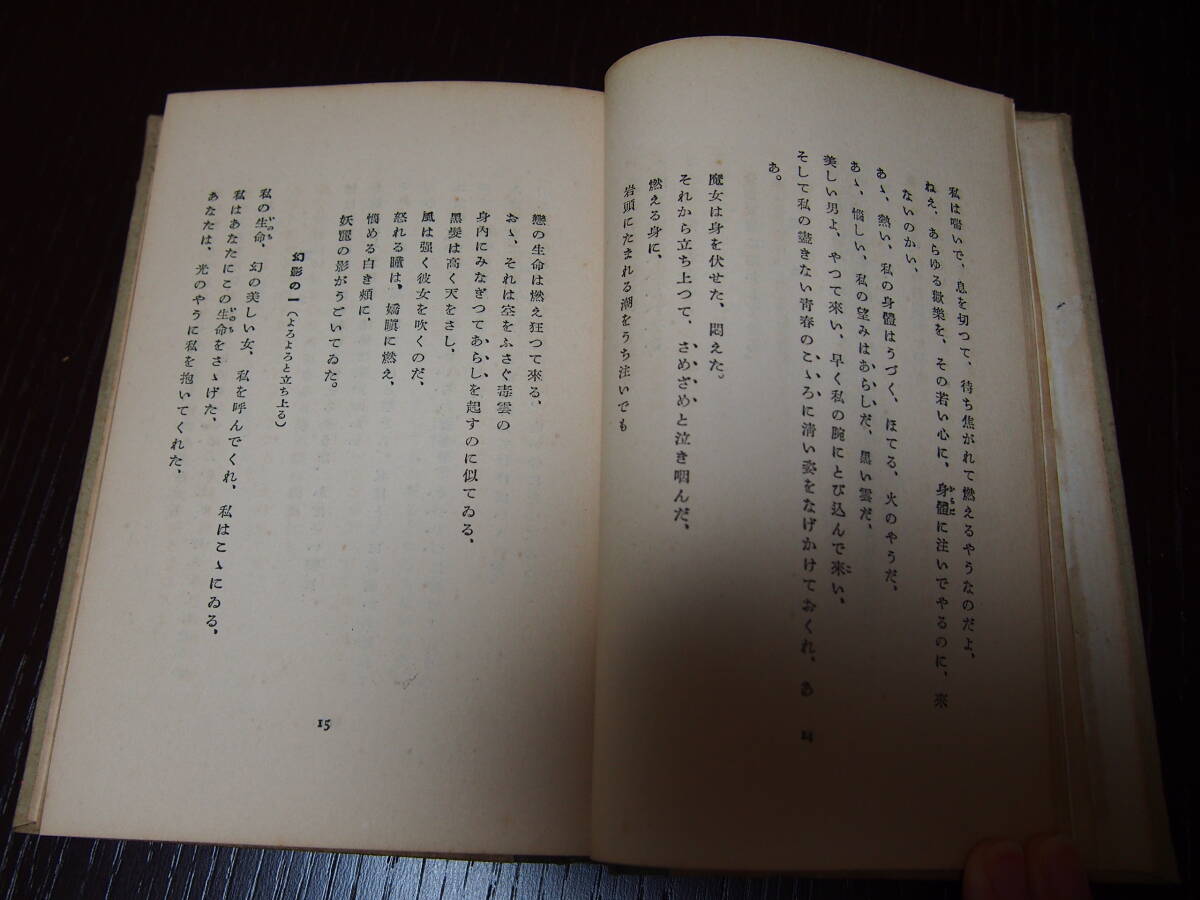 私は喘いで、息を切つて、待ち焦がれて燃えるやうなのだよ、
ねえ、あらゆる歓樂を、その若い心に、身體に注いでやるのに、來
ないのかい、
あゝ、熱い、私の身體はうづく、ほてる、火のやうだ、
あゝ、惱しい、私の望みはあらしだ、黒い雲だ、
美しい男よ、やつて來い、早く私の腕にとび込んで來い、
そして私の盡きない靑春のこゝろに淸い姿をなげかけておくれ、あ
あ。
魔女は身を伏せた、悶えた。
それから立ち上つて、さめざめと泣き咽んだ、
燃える身に、
岩頭にたまれる潮をうち注いでも
14
戀の生命は燃え狂つて來る、
おゝ、それは空をふさぐ毒雲の
身内にみなぎつてあらしを起すのに似てゐる、
黒髮は高く天をさし、
風は强く彼女を吹くのだ、
怒れる瞳は、嬌瞋に燃え、
惱める白き頰に、
妖寵の影がうごいてゐた。
幻影の一（よろよろと立ち上る）
私の生命、幻の美しい女、私を呼んでくれ、私はこゝにゐる、
私はあなたにこの生命をさゝげた、
あなたは、光のやうに私を抱いてくれた、
15